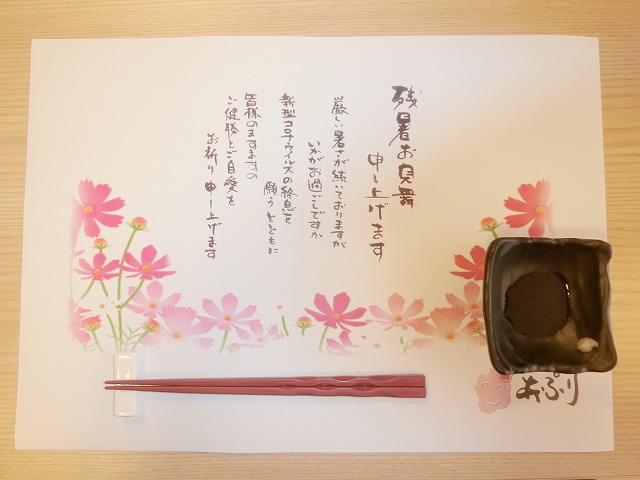 残暑お見舞
申し上げます
厳しい暑さが続いておりますが
いかがお過ごしですか
新型コロナウイルスの終息を
願うとともに
皆様のますますの
ご健勝とご自愛を
お祈り申し上げます
あぷり